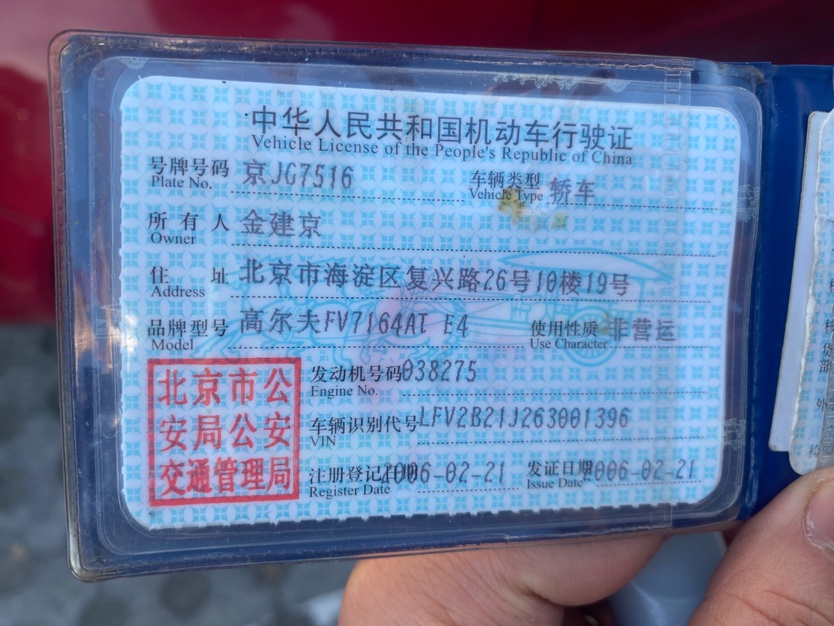 中华人民共和国机动车行驶证
Vehicle License of the People's Republic of China
号牌号码 京JG7516 车辆类型 轿车
Plate No. Vehicle Type
所有人 金建京
Owner
住址 北京市海淀区复兴路26号10楼19号
Address
品牌型号 高尔夫FV7164AT E4 使用性质 非营运
Model Use Character
北京市公
安局公安
交通管理局
发动机号码 038275
Engine No.
车辆识别代号 LFV2B21J263001396
VIN
注册登记日期 2006-02-21 发证日期 2006-02-21
Register Date Issue Date